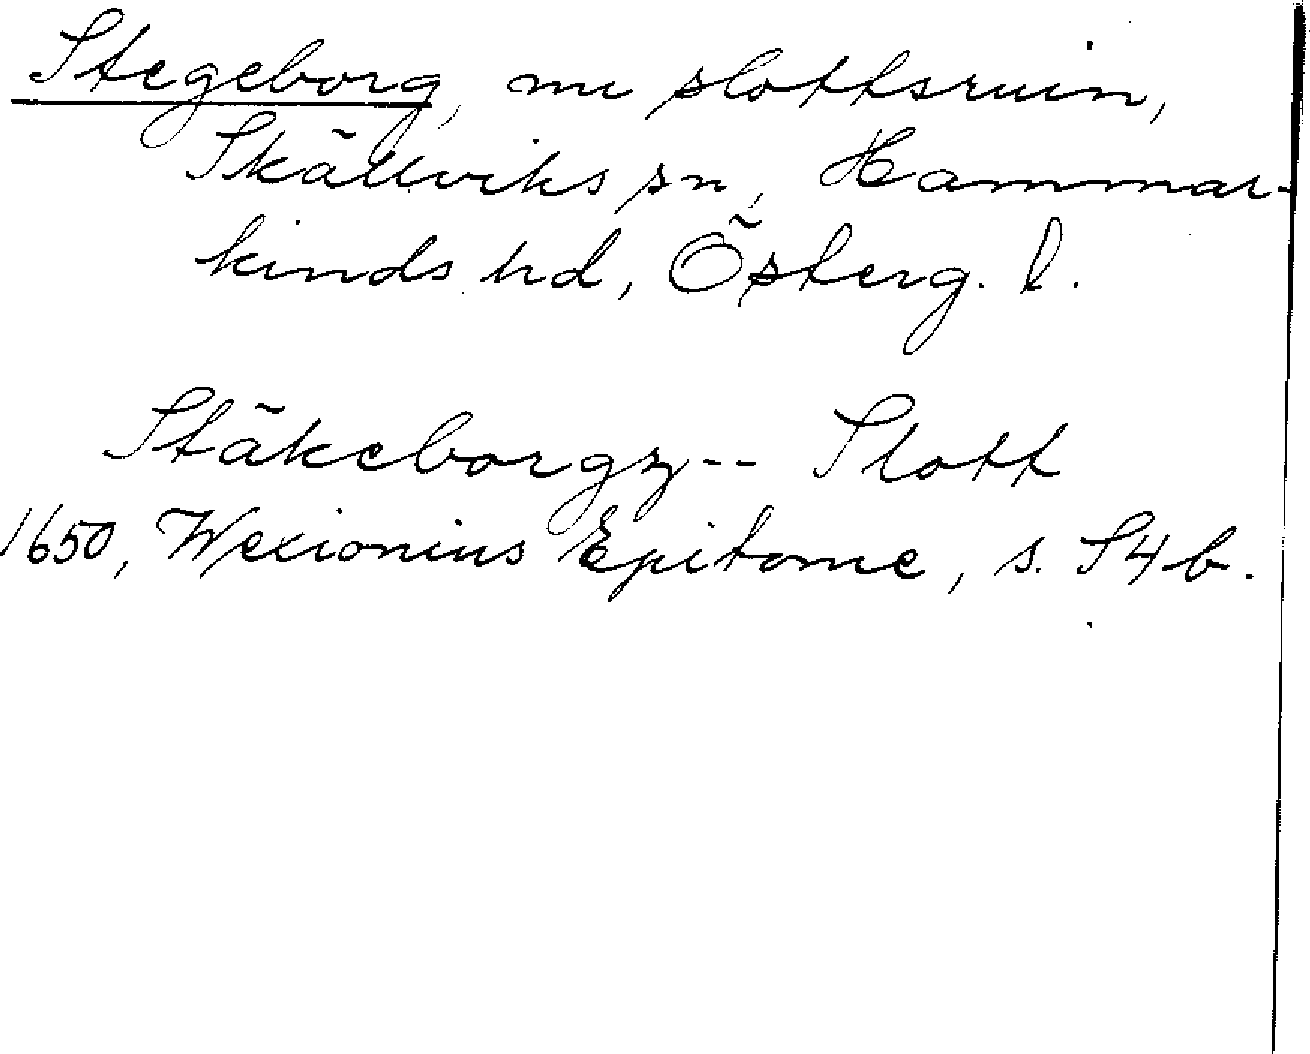 Stegeborg, nu slottsruin,
Skällviks sn, Hammar-
kinds hd, Österg. l.
Stäkeborgz-- Slott
1650, Wexionius Epitome, s. S4b.